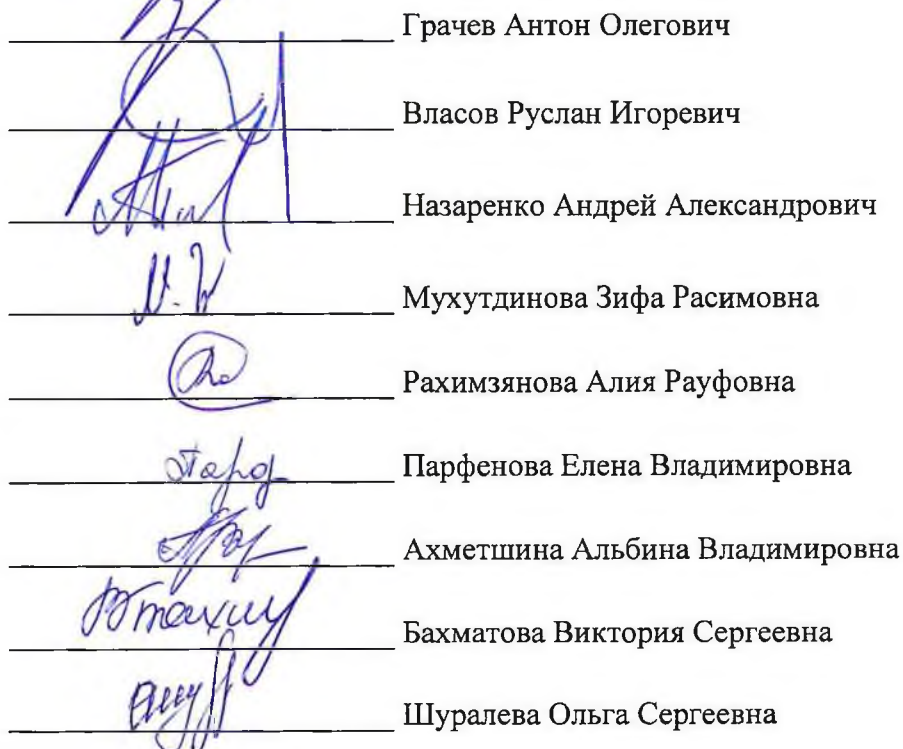 Грачев Антон Олегович
Власов Руслан Игоревич
Назаренко Андрей Александрович
Мухутдинова Зифа Расимовна
Рахимзянова Алия Рауфовна
Парфенова Елена Владимировна
Ахметшина Альбина Владимировна
Бахматова Виктория Сергеевна
Шуралева Ольга Сергеевна